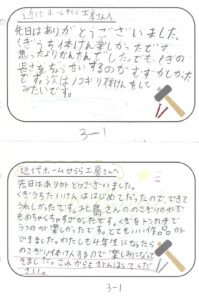 近代ホームせらら工房さんへ
先日はありがとうございました。
くぎうち体けん楽しかったです
思ったよりかんたんでした。でも、くぎの
長さをちょうせいするのがむずかしかった
です。次はノコギリ体けんをして
みたいです。
3-1
近代ホームせらら工房さんへ
先日はありがとうございました。
くぎうち体けんははじめてだったので、できて
うれしかったです。
ものすごかったです。くぎをトンカチで
うつのが楽しかったです。とてもいい作品が
できました。わたしも4年生になったら
のこぎり体けんするので楽しみにして
きました。これからもがんばってくだ
さい。
3-1